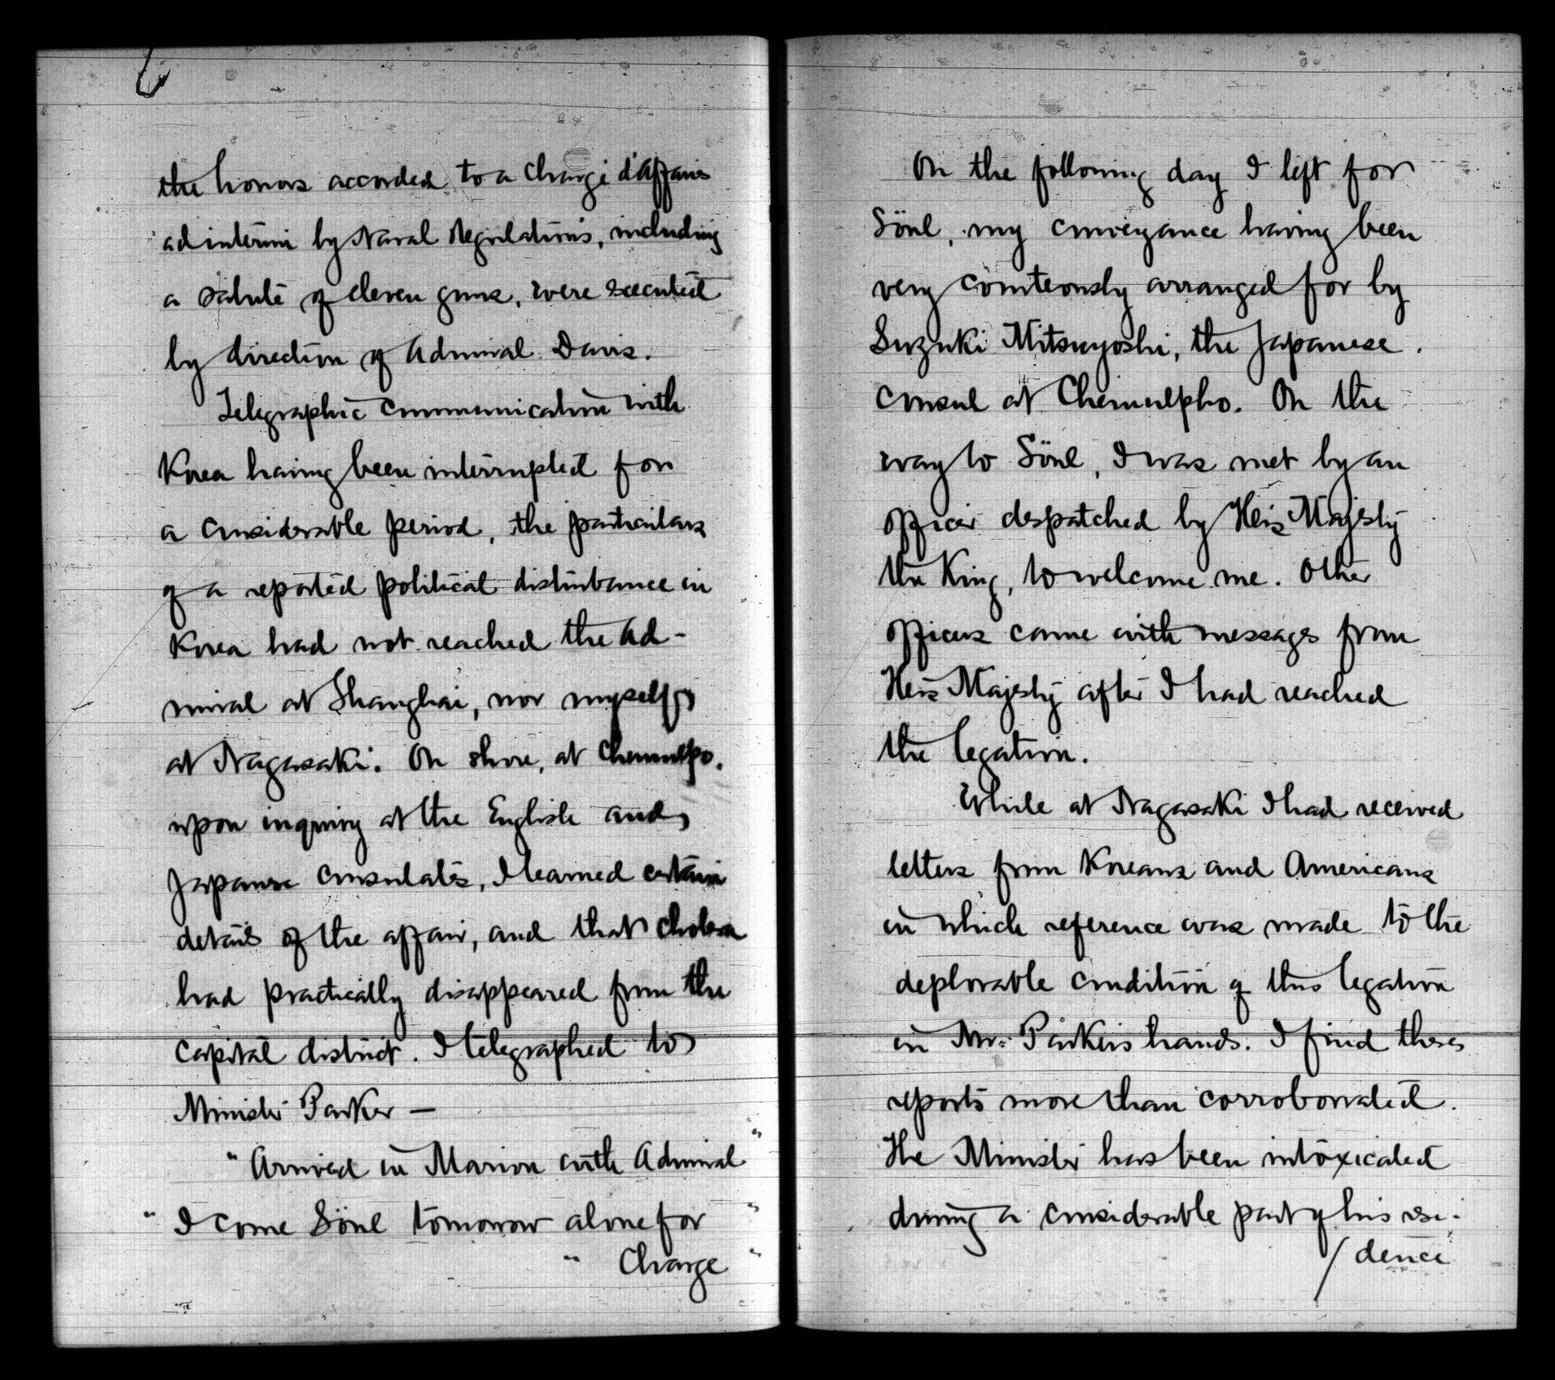 the honors accorded to a Chargé d'Affaires
ad interim by Naval Regulations, including
a salute of eleven guns, were executed
by direction of Admiral Davis.
Telegraphic communication with
Korea having been interrupted for
a considerable period, the particulars
of a reported political disturbance in
Korea had not reached the Ad-
miral at Shanghai, nor myself
at Nagasaki. On shore, at Chemulpo.
upon inquiry at the English and
Japanese consulates, I learned certain
details of the affair, and that cholera
had practically disappeared from the
capital district. I telegraphed to
Minister Parker —
"Arrived in Marion with Admiral "
" I come Söul tomorrow alone for "
" Charge "
On the following day I left for
Söul, my conveyance having been
very courteously arranged for by
Suzuki Mitsuyoshi, the Japanese
consul at Chemulpho. On the
way to Söul, I was met by an
officer despatched by His Majesty
the King, to welcome me. Other
officers came with messages from
His Majesty after I had reached
the legation.
While at Nagasaki I had received
letters from Koreans and Americans
in which reference was made to the
deplorable condition of this legation
in Mr. Parker's hands. I find these
reports more than corroborated.
The Minister has been intoxicated
during a considerable part of his resi-
/dence